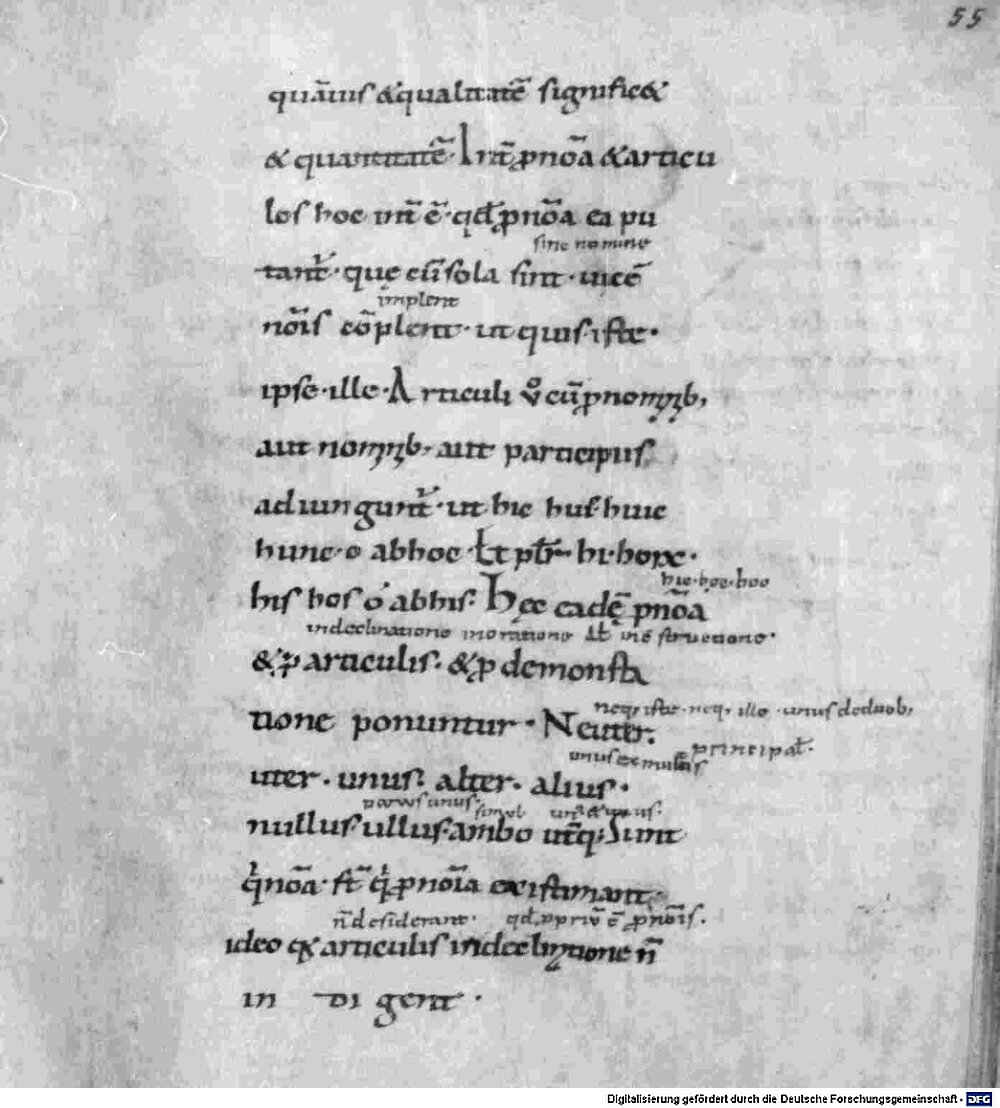 55
quāuis &qualitatē signific&
& quantitatē· Int̄ pnōa &articu
los hoc int̄ ē· qd pnōa ea pu
sine nomine
tant̄· quę cū sola sint· uicē
implent
nōis cōplent· ut quis· iste·
ipse· ille· Articuli ů cū pnominib,
aut nominib, aut participiis
adiungunt̄· ut hic huis huic
hunc· o abhoc· Et płr hi· horx·
hic· hęc· hoc
his hos ó abhis· Hęc eadē pnōa
indeclinatione inoratione ł inc structione·
&p articulis· &p demonstra
neq, iste· neq, ille· unus deduob,
tione ponuntur· Neuter·
unus demultis principał·
uter· unus· alter· alius·
paruus unus· simul
nullus ullus ambo ut̄q; Sunt
q nōa· st̄ q pnōia existimant·
n̄ desiderant· qd ppriū ē pnōis·
ideo q articulis indeclinatione n̄
in di gent·
Digitalisierung gefördert durch die Deutsche Forschungsgemeinschaft - DFG